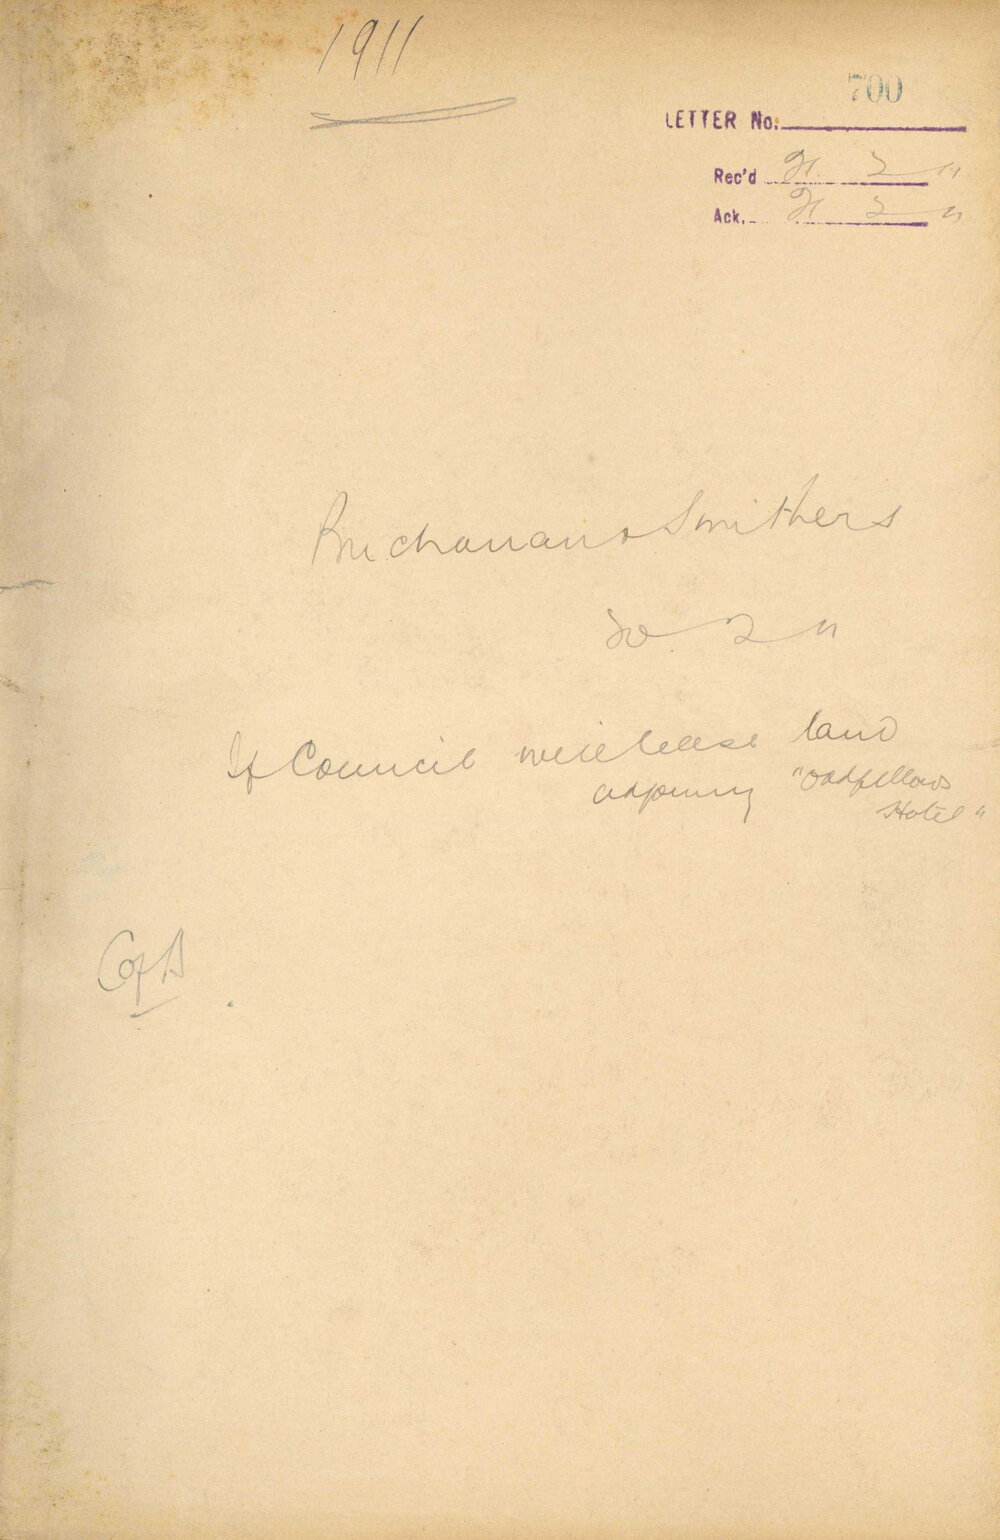 1911
700
LETTER No.
Rec'd 21. 2 11
Ack. 21 2 11
Buchanan & Smithers
20. 2 11
If Council will lease land
adjoining "Oddfellows
Hotel"